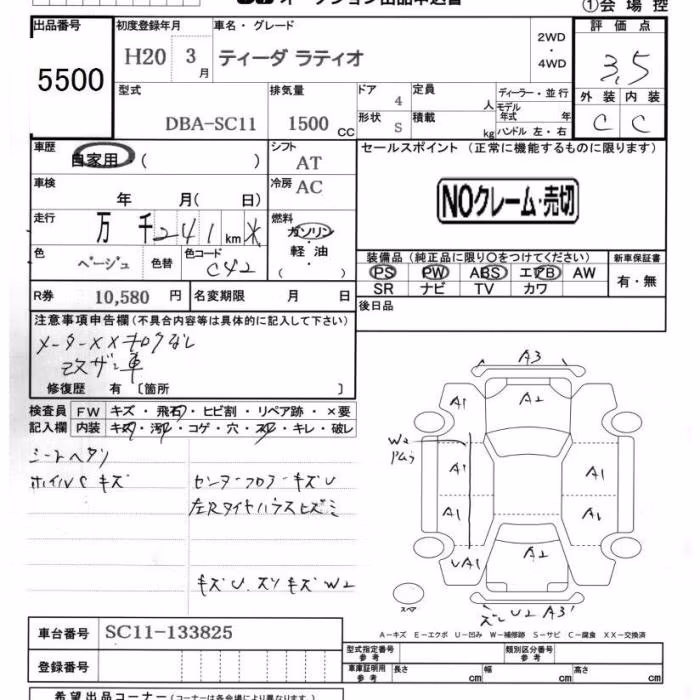 オークション出品申込書
①会場控
出品番号 初度登録年月 車名・グレード 評価点
5500 H20 3月 ティーダ ラティオ 2WD・4WD 3.5
外装 内装
C C
型式 排気量 ドア 定員 ディーラー・並行
DBA-SC11 1500 CC 4 人 モデル年式 年
形状 積載 ハンドル 左・右
S kg
車歴 シフト セールスポイント (正常に機能するものに限ります)
自家用 ( ) AT
車検 年 月( 日) 冷房 AC
NOクレーム・売切
走行 万 千241km 燃料
ガソリン・軽油
( )
色 ベージュ 色替 色コード C42
装備品 (純正品に限り○をつけてください) 新車保証書
PS PW ABS エアB AW 有・無
SR ナビ TV カワ
R券 10,580 円 名変期限 月 日 後日品
注意事項申告欄(不具合内容等は具体的に記入して下さい)
メーターXX キロクなし
改ザン車
修復歴 有〔箇所 〕
検査員 FW キズ・飛石・ヒビ割・リペア跡・×要
記入欄 内装 キズ・汚れ・コゲ・穴・スレ・キレ・破レ
シートヘタリ
ホイルC キズ センターフロアーキズU
キズU.ズリキズW2
A3
A1 A2
W2
A1 A1
A1 A1
UA1 A2
スペア
U2 A3
A-キズ E-エクボ U-凹み W-補修跡 S-サビ C-腐食 XX-交換済
車台番号 SC11-133825
型式指定番号 参考 類別区分番号 参考
登録番号 車庫証明用 参考 長さ cm 幅 cm 高さ cm
希望出品コーナー(コーナーは各会場により異なります)